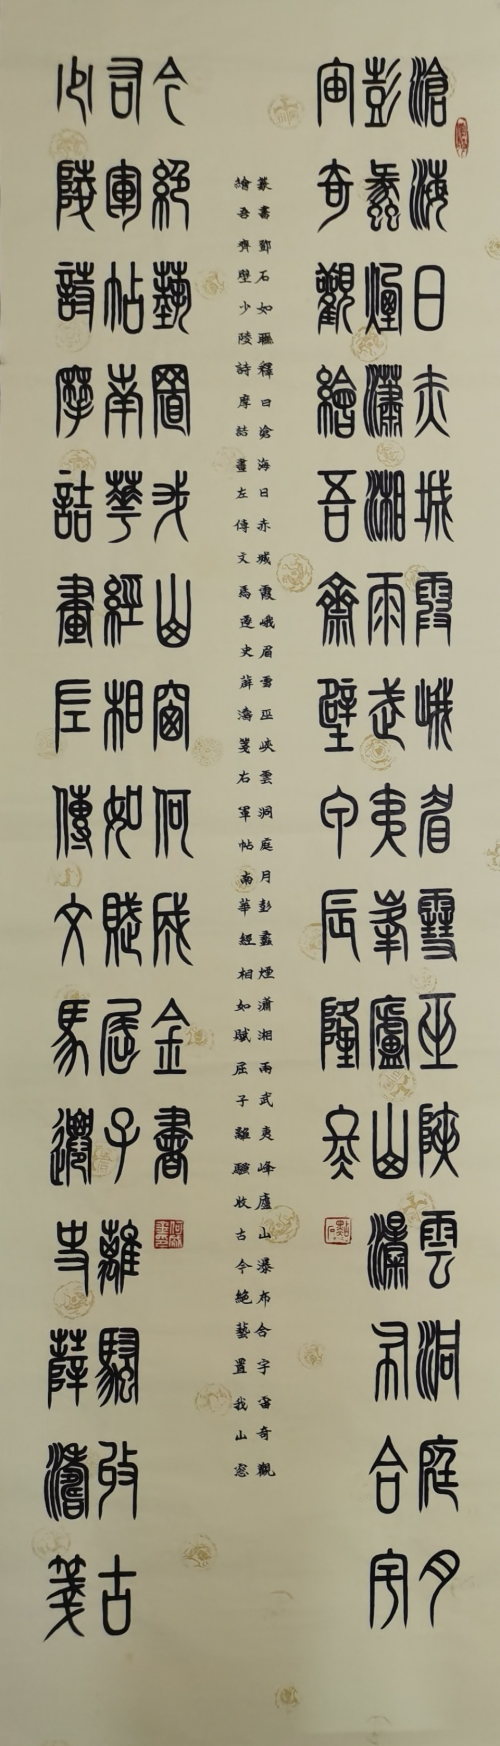 滄海日赤城霞峨眉雪巫峽雲洞庭月
彭蠡煙瀟湘雨武夷峰廬山瀑布合宇
宙奇觀繪吾齋壁甲辰隆冬
篆書鄧石如聯釋曰滄海日赤城霞峨眉雪巫峽雲洞庭月彭蠡煙瀟湘雨武夷峰廬山瀑布合宇宙奇觀
繪吾齊壁少陵詩摩詰畫左傳文馬遷史薛濤箋右軍帖南華經相如賦屈子離騷收古今絕藝置我山窓
少陵詩摩詰畫左傳文馬遷史薛濤箋
右軍帖南華經相如賦屈子離騷收古
今絕藝置我山窗何成金書